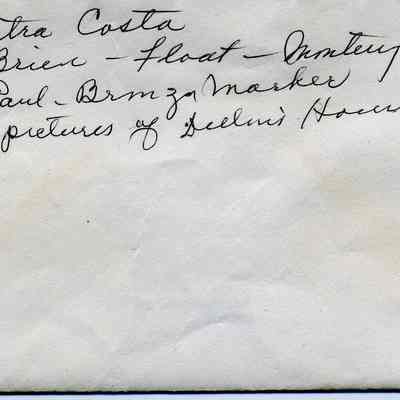 tra Costa
Brien - Float - Monterey
Paul - Bronze Marker
pictures of House